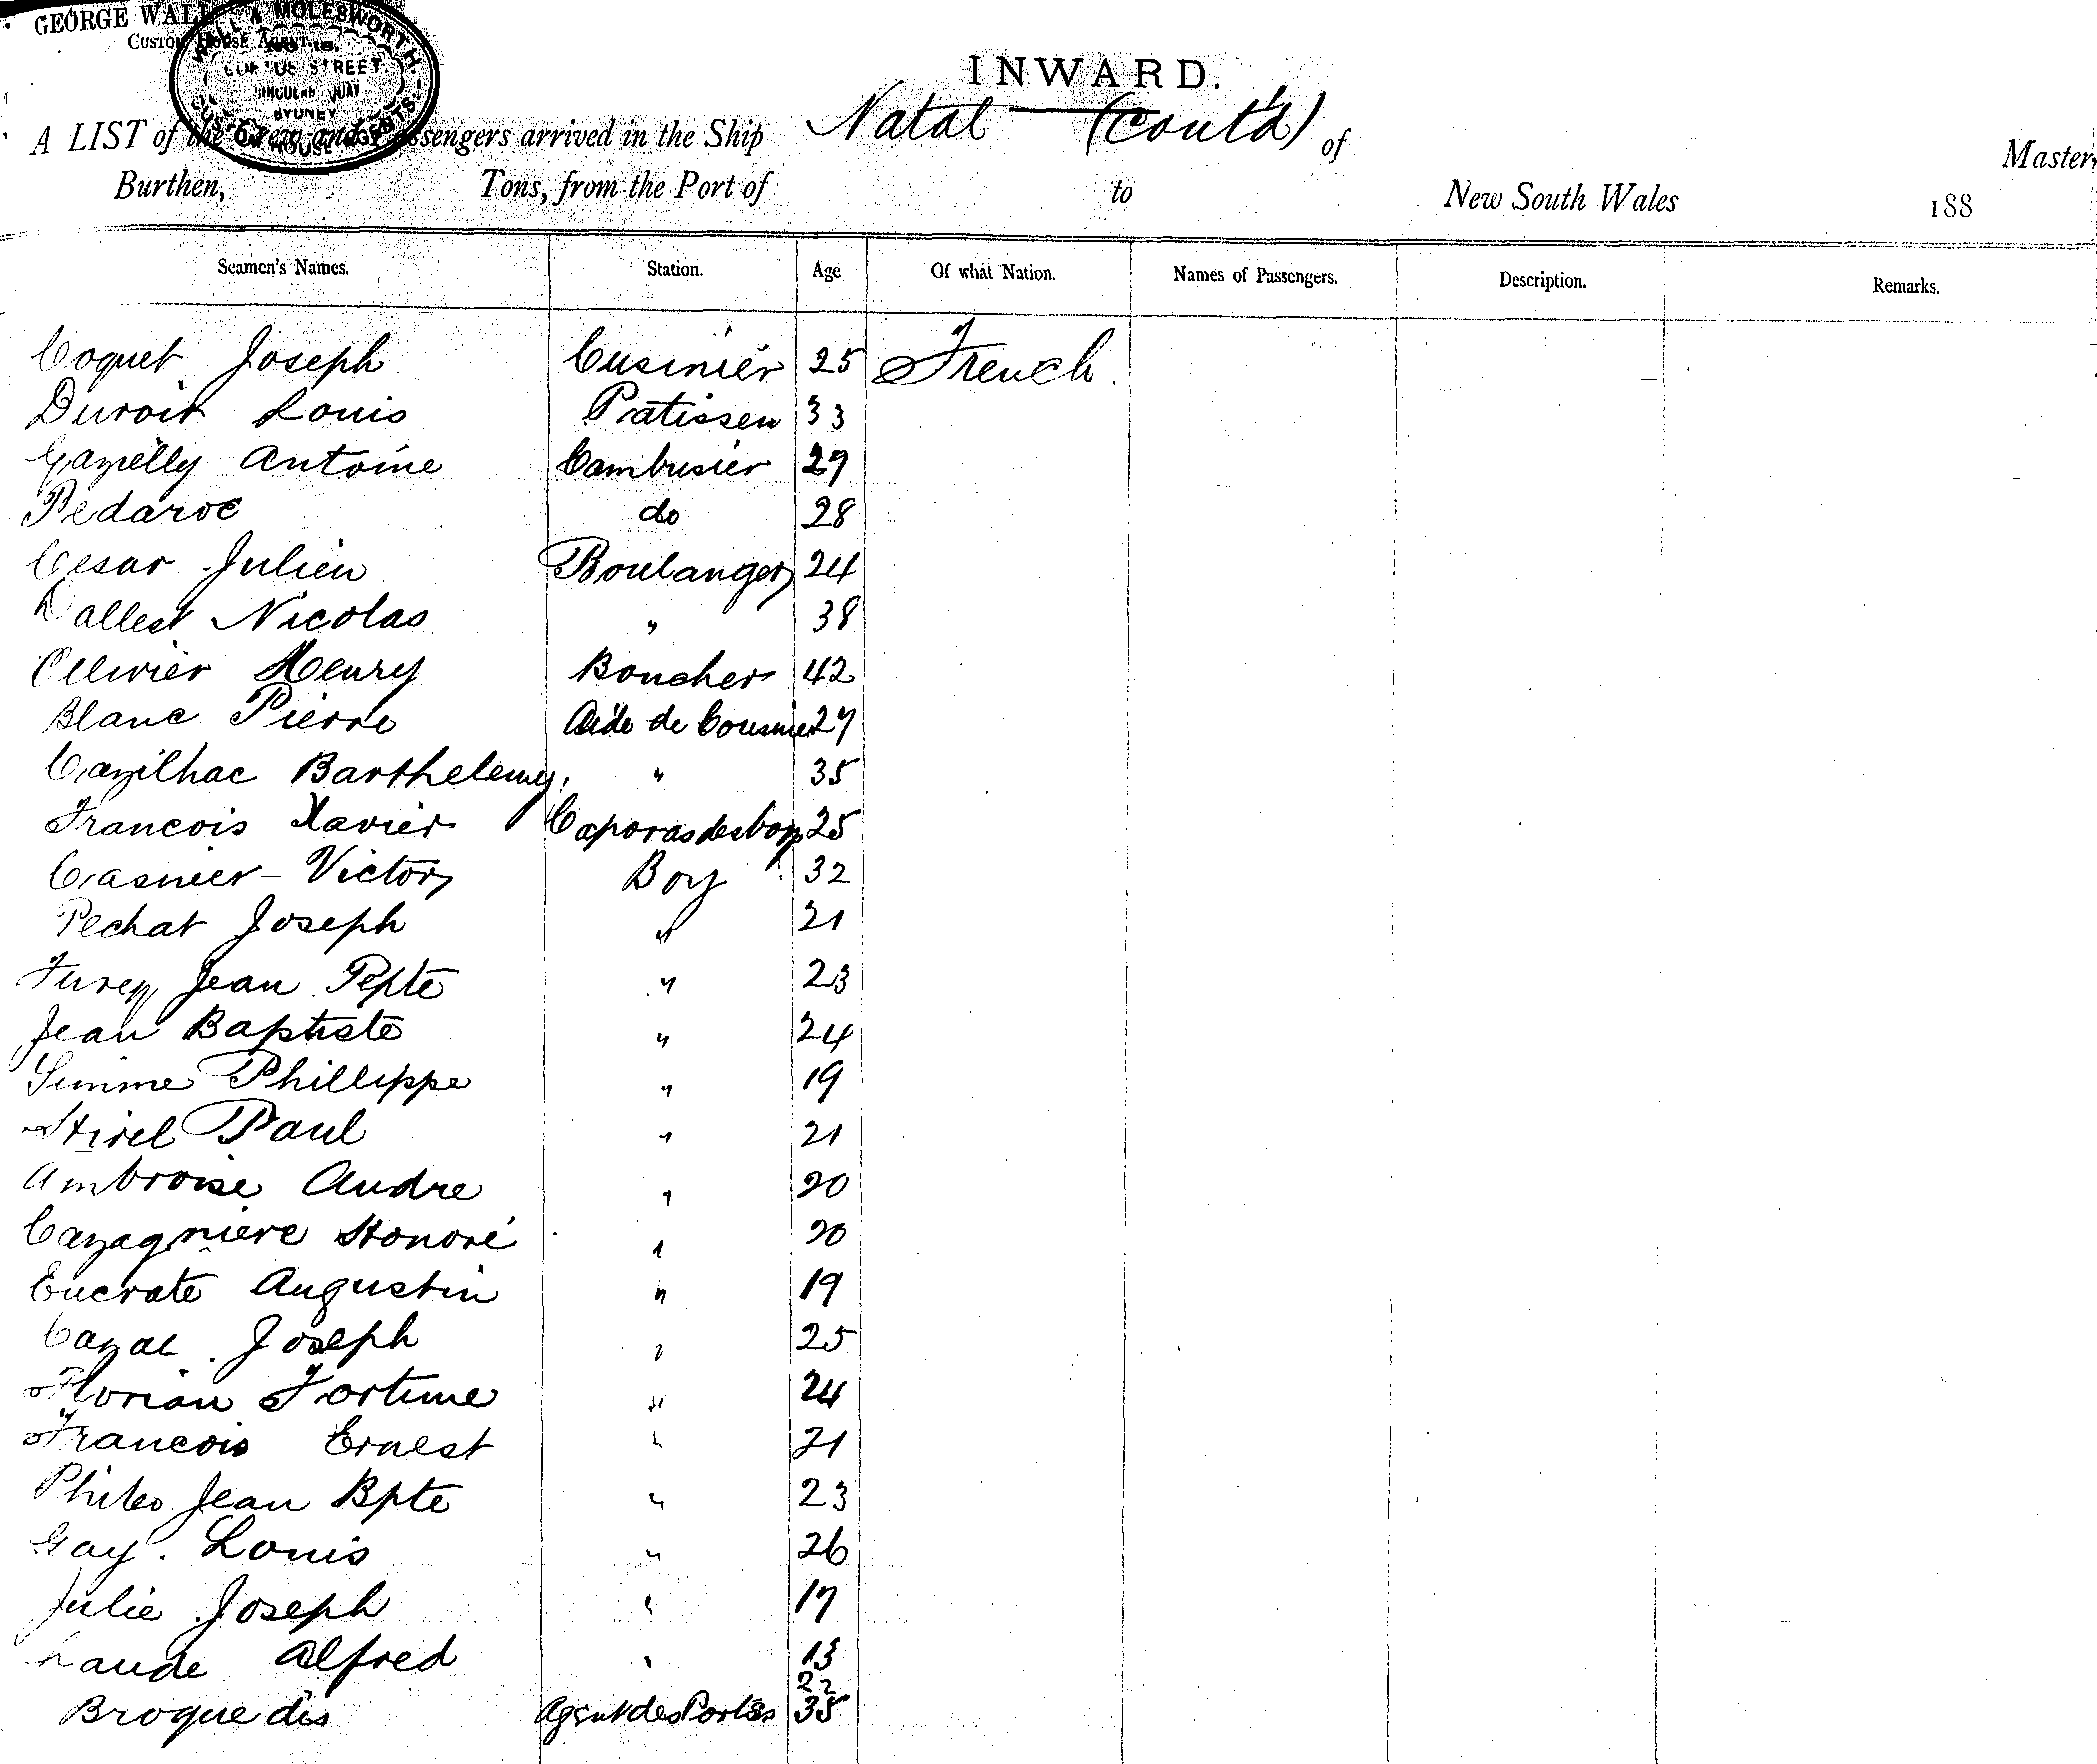 GEORGE WALL
Custom House Agent
WALL & MOLESWORTH
STREET
CIRCULAR QUAY
SYDNEY
CUSTOM HOUSE AGENTS
INWARD.
A LIST of the Crew and Passengers arrived in the Ship Natal (Cont'd) of Master,
Burthen, Tons, from the Port of to New South Wales 188
Seamen's Names. Station. Age Of what Nation. Names of Passengers. Description. Remarks.
Coquet Joseph Cusinier 25 French
Duroit Louis Patissen 33
Gazielly Antoine Cambusier 29
Pedaroc do 28
Cesar Julien Boulanger 24
Dallest Nicolas " 38
Ollivier Henry Boucher 42
Blanc Pierre Aide de Cousnier 27
Cazilhac Barthelemy " 35
Francois Xavier Caporas des boys 25
Casnier - Victor Boy 32
Pechat Joseph " 21
Jean 23
Jean Baptiste " 24
Simme Phillippe " 19
Stirel Paul " 21
Ambroise Andre " 20
Cazagniere Honoré " 20
Eucrate Augustin " 19
Cazal Joseph " 25
Florian Fortune " 24
Francois Ernest " 21
Phileo Jean Bpte " 23
Gay. Louis " 26
Julie Joseph " 17
Laude Alfred " 13
22
Broquedis Agent des Postes 35